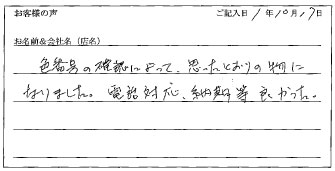 お客様の声
ご記入日 1年10月17日
お名前＆会社名（店名）
色番号の確認によって、思ったとおりの物に
なりました。電話対応、納期等良かった。